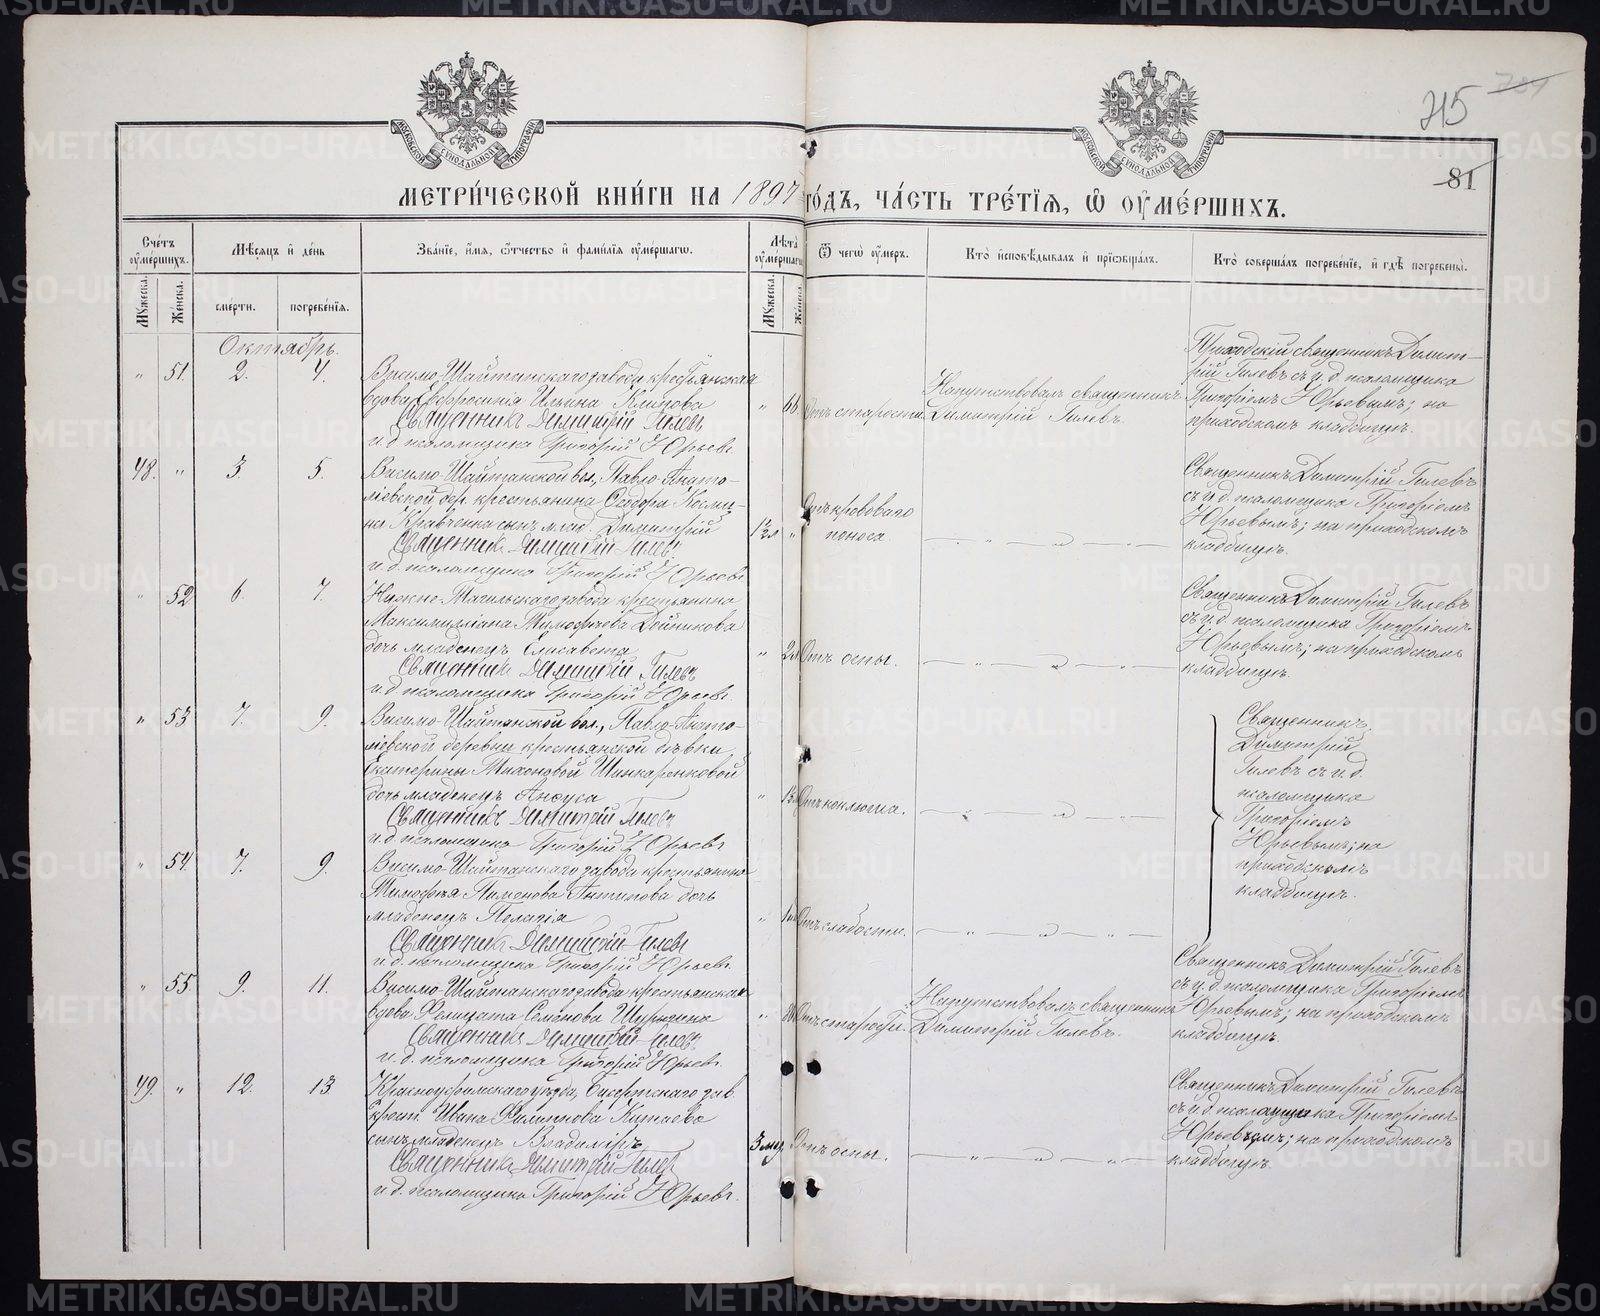 METRIKI.GASO-URAL.RU
715
81
МОСКОВСКОЙ СѴНОДАЛЬНОЙ ТИПОГРАФІИ
МЕТРИ́ЧЕСКОЙ КНИ́ГИ НА 1897 ГО́ДЪ, ЧА́СТЬ ТРЕ́ТІѦ, Ѽ ОУМЕ́РШИХЪ.
Сче́тъ оуме́ршихъ.
Мѣ́сѧцъ и де́нь
Зва́нїе, и́мѧ, ѻ҆́тчество и фами́лїѧ оуме́ршагѡ.
Лѣ́та оуме́ршагѡ
Ѿ чегѡ̀ оу́мер.
Кто̀ и҆сповѣ́дывалъ и прїѡбща́лъ.
Кто̀ соверша́лъ погребе́нїе, и гдѣ̀ погребены̀.
Мꙋжеска.
Же́нска.
сме́рти.
погребе́нїѧ.
Мꙋжеска.
Же́нска.
Октябрь.
" 51. 2. 4.
Висимо-Шайтанскаго завода крестьянская
вдова Евфросинія Ильина
Священникъ Димитрій Гилевъ
и. д. псаломщика Григорій Юрьевъ.
Отъ старости.
Напутствовалъ священникъ
Димитрій Гилевъ.
Приходскій священникъ Димит-
рій Гилевъ съ и. д. псаломщика
Григоріемъ Юрьевымъ; на
приходскомъ кладбищѣ.
48. " 3. 5.
Висимо-Шайтанской вол., Павло-Анато-
ліевской дер. крестьянина Ѳеодора Косми-
на Кравченка сынъ млад. Димитрій
Священникъ Димитрій Гилевъ
и. д. псаломщика Григорій Юрьевъ
Отъ кроваваго
поноса.
Священникъ Димитрій Гилевъ
съ и. д. псаломщика Григоріемъ
Юрьевымъ; на приходскомъ
кладбищѣ.
" 52 6. 7.
Нижне-Тагильскаго завода крестьянина
Максимиліана Тимофѣева Дойникова
дочь младенецъ Елисавета
Священникъ Димитрій Гилевъ
и. д. псаломщика Григорій Юрьевъ.
" 2 л
Отъ оспы.
Священникъ Димитрій Гилевъ
съ и. д. псаломщика Григоріемъ
Юрьевымъ; на приходскомъ
кладбищѣ.
" 53 7. 9.
Висимо-Шайтанской вол., Павло-Анато-
ліевской деревни крестьянской дѣвки
Екатерины Тихоновой Шинкаренковой
дочь младенецъ Анѳуса
Священникъ Димитрій Гилевъ
и. д. псаломщика Григорій Юрьевъ
Отъ коклюша.
Священникъ
Димитрій
Гилевъ съ и. д.
псаломщика
Григоріемъ
Юрьевымъ; на
приходскомъ
кладбищѣ.
" 54. 7. 9.
Висимо-Шайтанскаго завода крестьянина
Тимофѣя Пименова Антипова дочь
младенецъ Пелагія
Священникъ Димитрій Гилевъ
и. д. псаломщика Григорій Юрьевъ.
Отъ слабости.
" 55 9. 11.
Висимо-Шайтанскаго завода крестьянская
вдова Фелицата Семёнова
Священникъ Димитрій Гилевъ
и. д. псаломщика Григорій Юрьевъ.
Отъ старости.
Напутствовалъ священникъ
Димитрій Гилевъ.
Священникъ Димитрій Гилевъ
съ и. д. псаломщика Григоріемъ
Юрьевымъ; на приходскомъ
кладбищѣ.
49. " 12. 13
Красноуфимскаго уѣзда, Бисертскаго зав.
крест. Ивана Филиппова
сынъ младенецъ Владиміръ
Священникъ Димитрій Гилевъ
и. д. псаломщика Григорій Юрьевъ.
3 мц.
Отъ оспы.
Священникъ Димитрій Гилевъ
съ и. д. псаломщика Григоріемъ
Юрьевымъ; на приходскомъ
кладбищѣ.